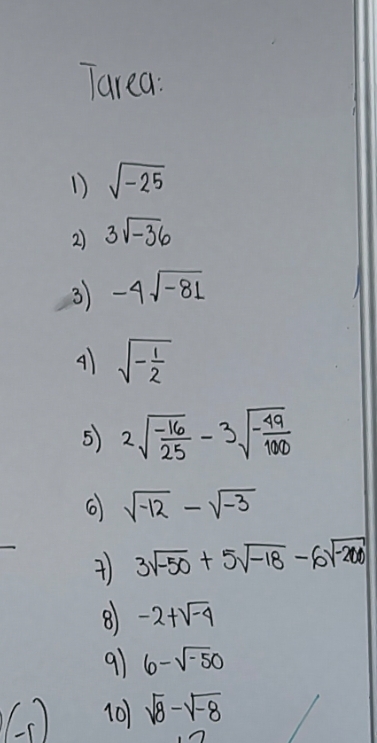 Tarea:
1) √-25
2) 3√-36
3) -4√-81
4) √-1/2
5) 2√-16/25 - 3√-49/100
6) √-12 - √-3
7) 3√-50 + 5√-18 - 6√-200
8) -2+√-4
9) 6-√-50
10) √8-√-8